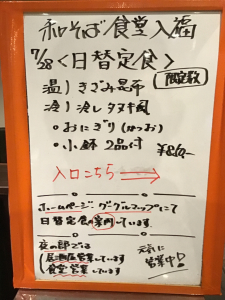 和そば食堂入福
7/28<日替定食>
温)きざみ昆布
限定数
冷)冷したヌキ風
・おにぎり(かつお)
・小鉢2品付
¥850-
入口こちら→
ホームページ、グーグルマップにて
日替定食の案内しています
夜の部ござる
居酒屋営業しています
食堂営業しています
元気に
営業中!